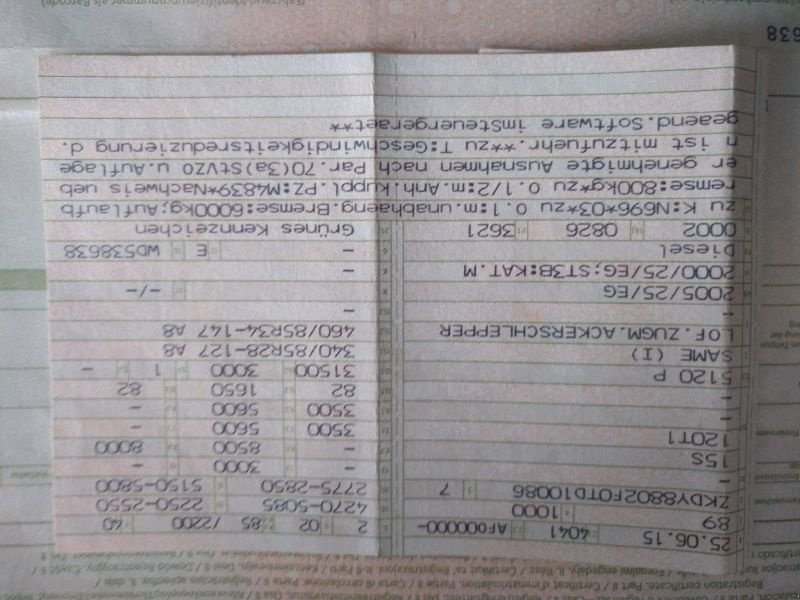 Registration certificate. Part II / Certificat d'immatriculation. Partie II / Carta di circolazione. Parte II /
25.06.15 4041 AF000000- 2 02 85 /2200 40
89 1000 4270-5085 2250-2550
ZKDY8802F0TD10086 7 2775-2850 5150-5800
- - 3000 -
15S - 8500 8000
120T1 3500 5600 -
- 3500 5600 -
- 82 1650 82
5120 P 31500 3000 1 -
SAME (I) 340/85R28-127 A8
LOF.ZUGM.ACKERSCHLEPPER 460/85R34-147 A8
- -
2005/25/EG -/-
2000/25/EG;ST3B:KAT.M -
Diesel - E WD538638
0002 0826 3621 Grünes Kennzeichen
zu K:N696*03*zu O.1:m.unabhaeng.Bremse:6000kg;Auflaufb
remse:800kg*zu O.1/2:m.Anh.Kuppl.PZ:M4839*Nachweis ueb
er genehmigte Ausnahmen nach Par.70(3a)StVZO u.Auflage
n ist mitzufuehr.**zu T:Geschwindigkeitsreduzierung d.
geaend.Software imSteuergeraet**
638